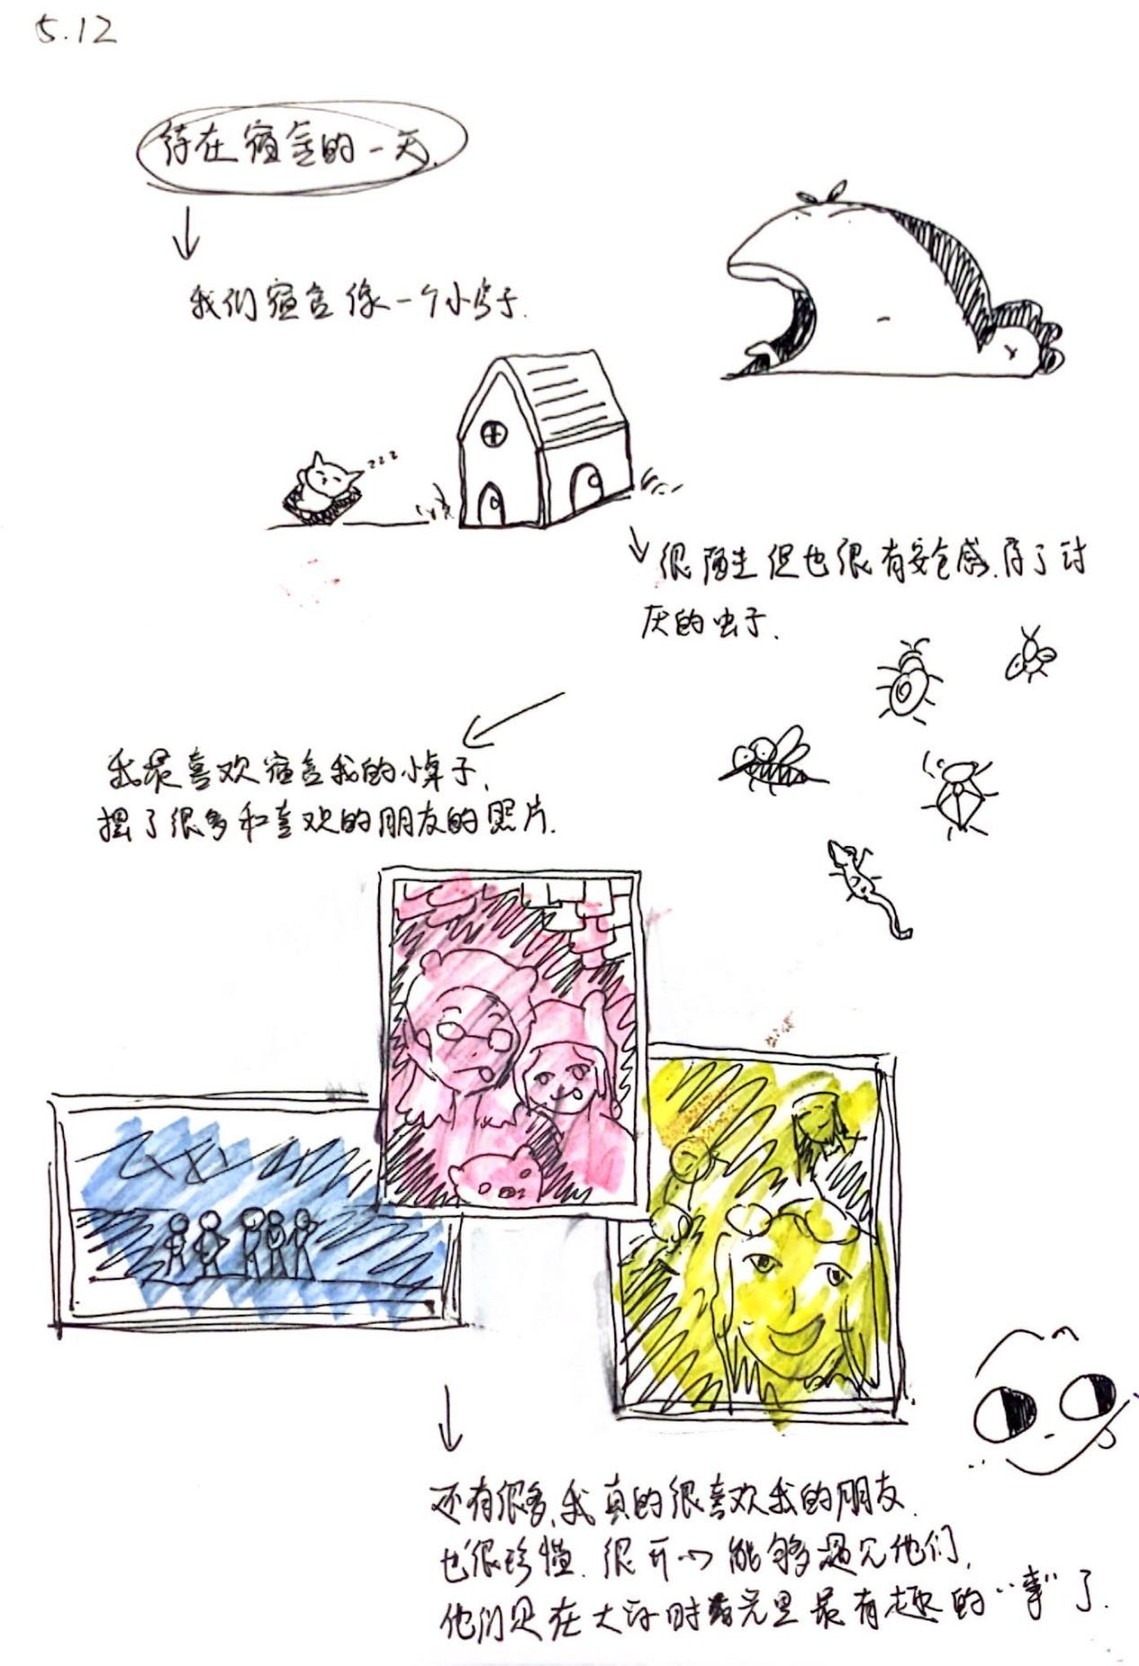 5.12
待在宿舍的一天.
我们宿舍像一个小房子.
zzz
很陌生但也很有安全感.除了讨
厌的虫子.
我最喜欢宿舍我的小桌子,
摆了很多和喜欢的朋友的照片.
还有很多,我真的很喜欢我的朋友.
也很珍惜.很开心能够遇见他们,
他们是在大学时光里最有趣的"事"了.